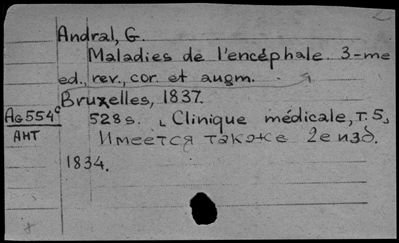 Andral, G.
Maladies de l'encéphale. 3-me
ed., rev., cor. et augm.
Bruxelles, 1837.
Ag554°
AHT
528 s. "Clinique médicale, т. 5"
Имеется также 2е изд.
1834.